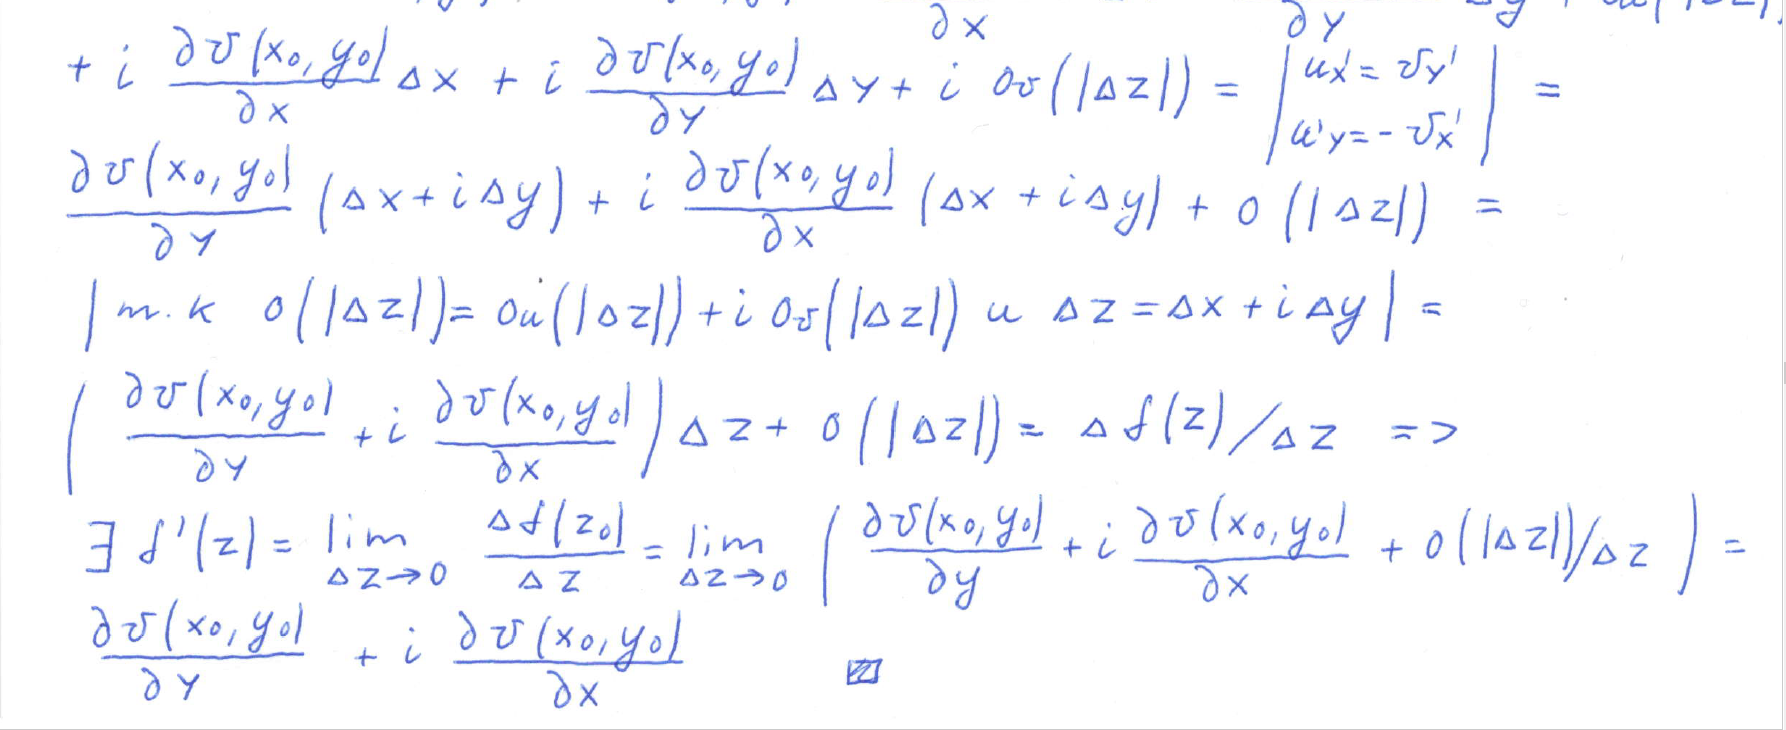 ∂x ∂y Δy
+ i ∂v(x₀, y₀)/∂x Δx + i ∂v(x₀, y₀)/∂y Δy + i o_v(|Δz|) = | u'x = v'y, u'y = - v'x | =
∂v(x₀, y₀)/∂y (Δx + iΔy) + i ∂v(x₀, y₀)/∂x (Δx + iΔy) + o(|Δz|) =
| т.к o(|Δz|) = o_u(|Δz|) + i o_v(|Δz|) и Δz = Δx + iΔy | =
( ∂v(x₀, y₀)/∂y + i ∂v(x₀, y₀)/∂x ) Δz + o(|Δz|) = Δf(z) /Δz =>
∃ f'(z) = lim Δz→0 Δf(z₀)/Δz = lim Δz→0 ( ∂v(x₀, y₀)/∂y + i ∂v(x₀, y₀)/∂x + o(|Δz|)/Δz ) =
∂v(x₀, y₀)/∂y + i ∂v(x₀, y₀)/∂x